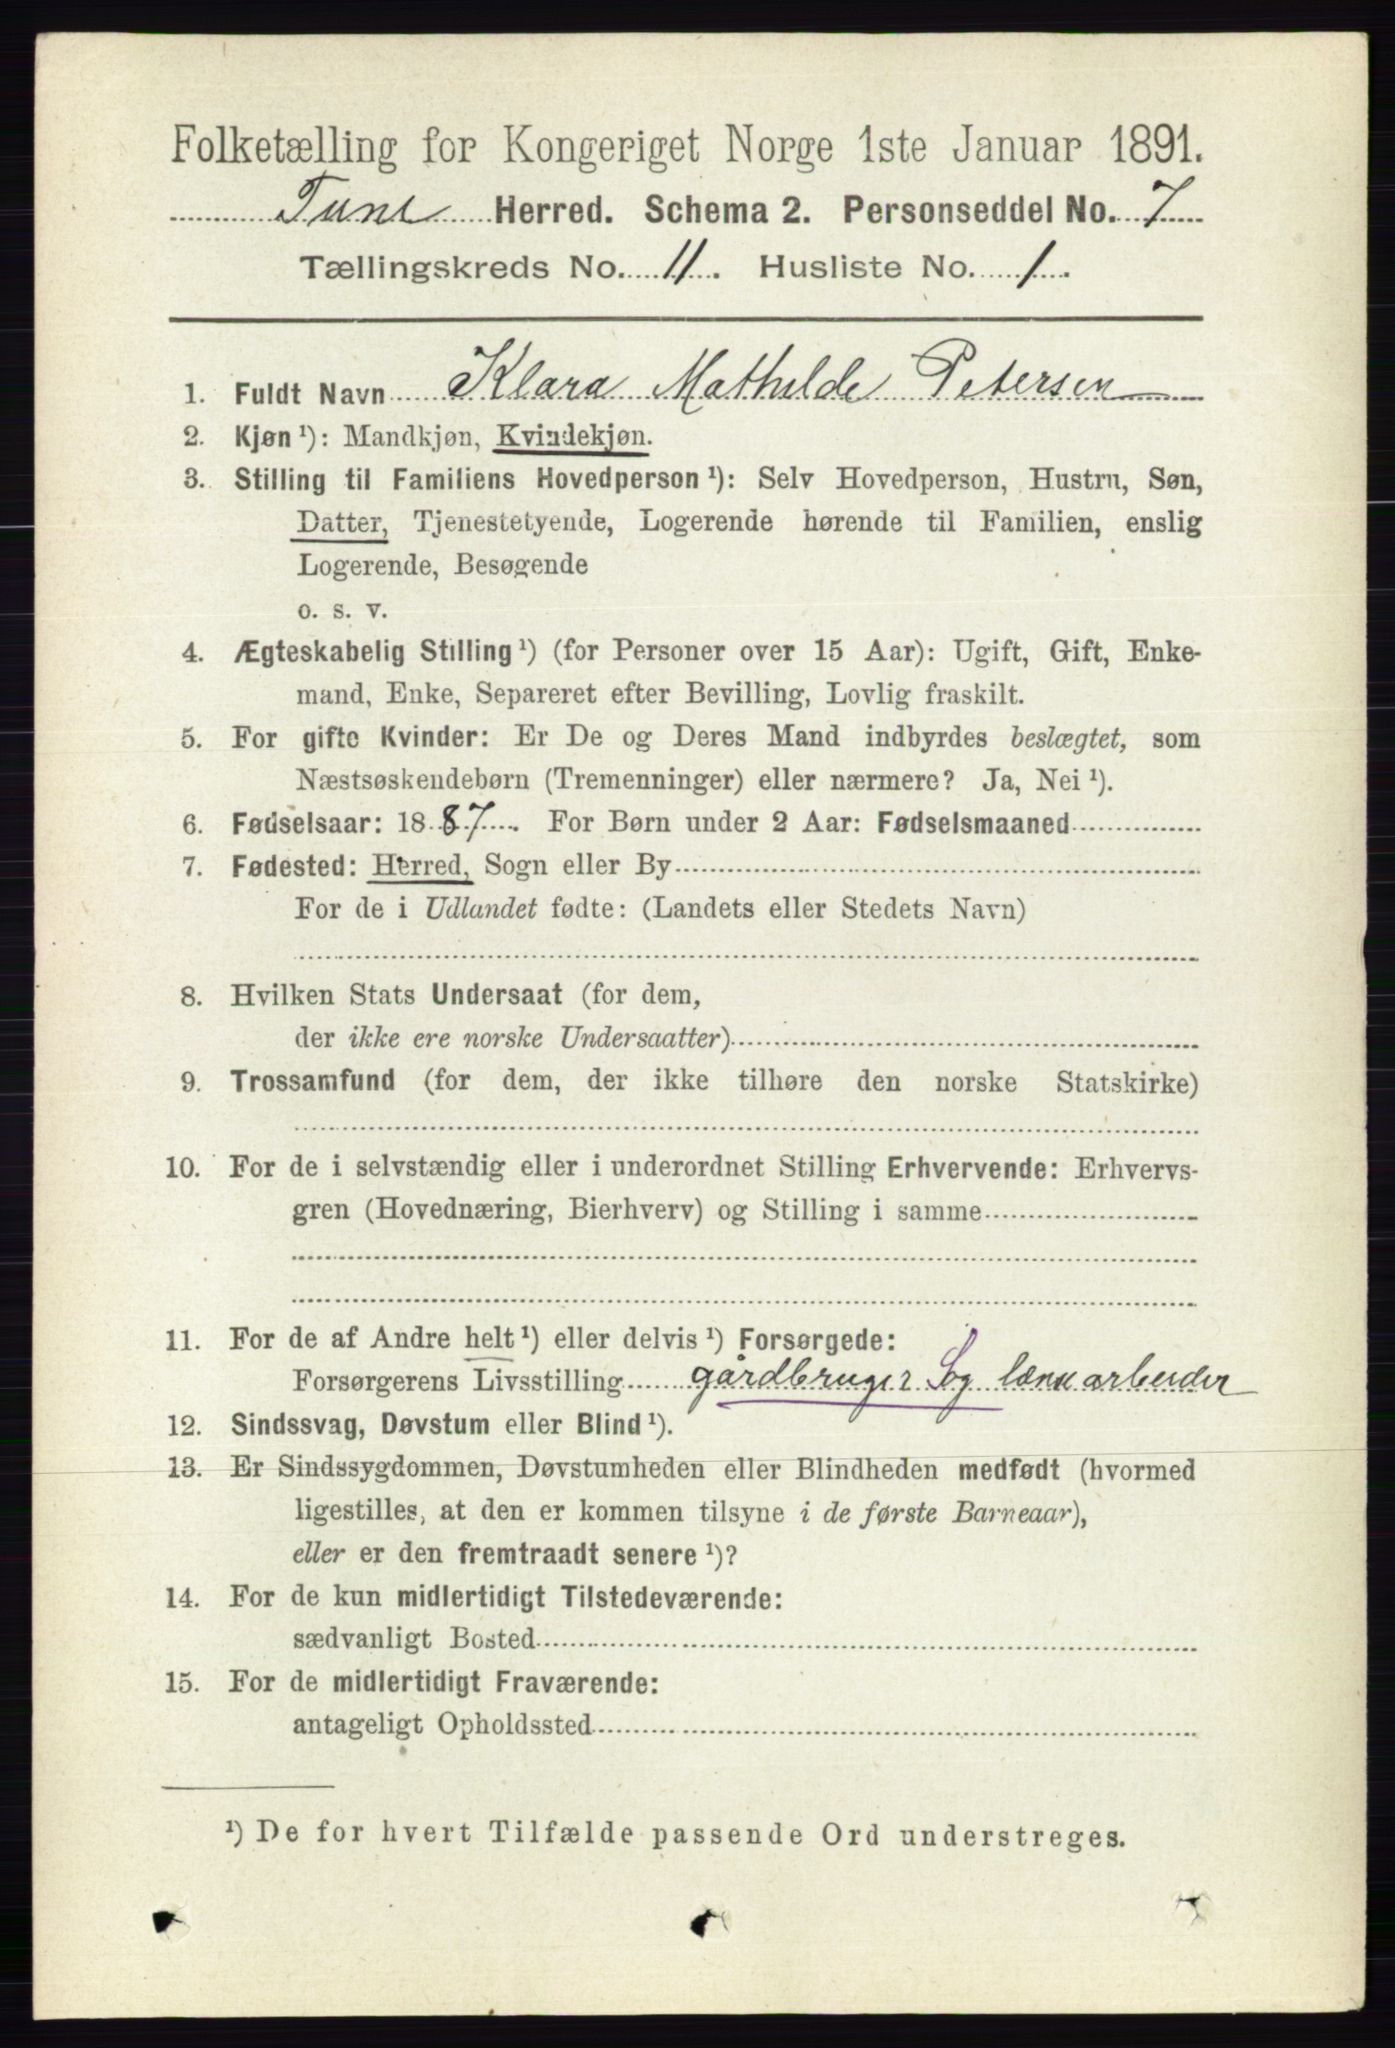 Folketælling for Kongeriget Norge 1ste Januar 1891.
Tune Herred. Schema 2. Personseddel No. 7
Tællingskreds No. 11. Husliste No. 1.
1. Fuldt Navn Klara Mathilde Petersen
2. Kjøn ¹): Mandkjøn, Kvindekjøn.
3. Stilling til Familiens Hovedperson ¹): Selv Hovedperson, Hustru, Søn,
Datter, Tjenestetyende, Logerende hørende til Familien, enslig
Logerende, Besøgende
o. s. v.
4. Ægteskabelig Stilling ¹) (for Personer over 15 Aar): Ugift, Gift, Enke-
mand, Enke, Separeret efter Bevilling, Lovlig fraskilt.
5. For gifte Kvinder: Er De og Deres Mand indbyrdes beslægtet, som
Næstsøskendebørn (Tremenninger) eller nærmere? Ja, Nei ¹).
6. Fødselsaar: 1887. For Børn under 2 Aar: Fødselsmaaned
7. Fødested: Herred, Sogn eller By
For de i Udlandet fødte: (Landets eller Stedets Navn)
8. Hvilken Stats Undersaat (for dem,
der ikke ere norske Undersaatter)
9. Trossamfund (for dem, der ikke tilhøre den norske Statskirke)
10. For de i selvstændig eller i underordnet Stilling Erhvervende: Erhvervs-
gren (Hovednæring, Bierhverv) og Stilling i samme
11. For de af Andre helt ¹) eller delvis ¹) Forsørgede:
Forsørgerens Livsstilling gårdbruger S og arbeider
12. Sindssvag, Døvstum eller Blind ¹).
13. Er Sindssygdommen, Døvstumheden eller Blindheden medfødt (hvormed
ligestilles, at den er kommen tilsyne i de første Barneaar),
eller er den fremtraadt senere ¹)?
14. For de kun midlertidigt Tilstedeværende:
sædvanligt Bosted
15. For de midlertidigt Fraværende:
antageligt Opholdssted
¹) De for hvert Tilfælde passende Ord understreges.